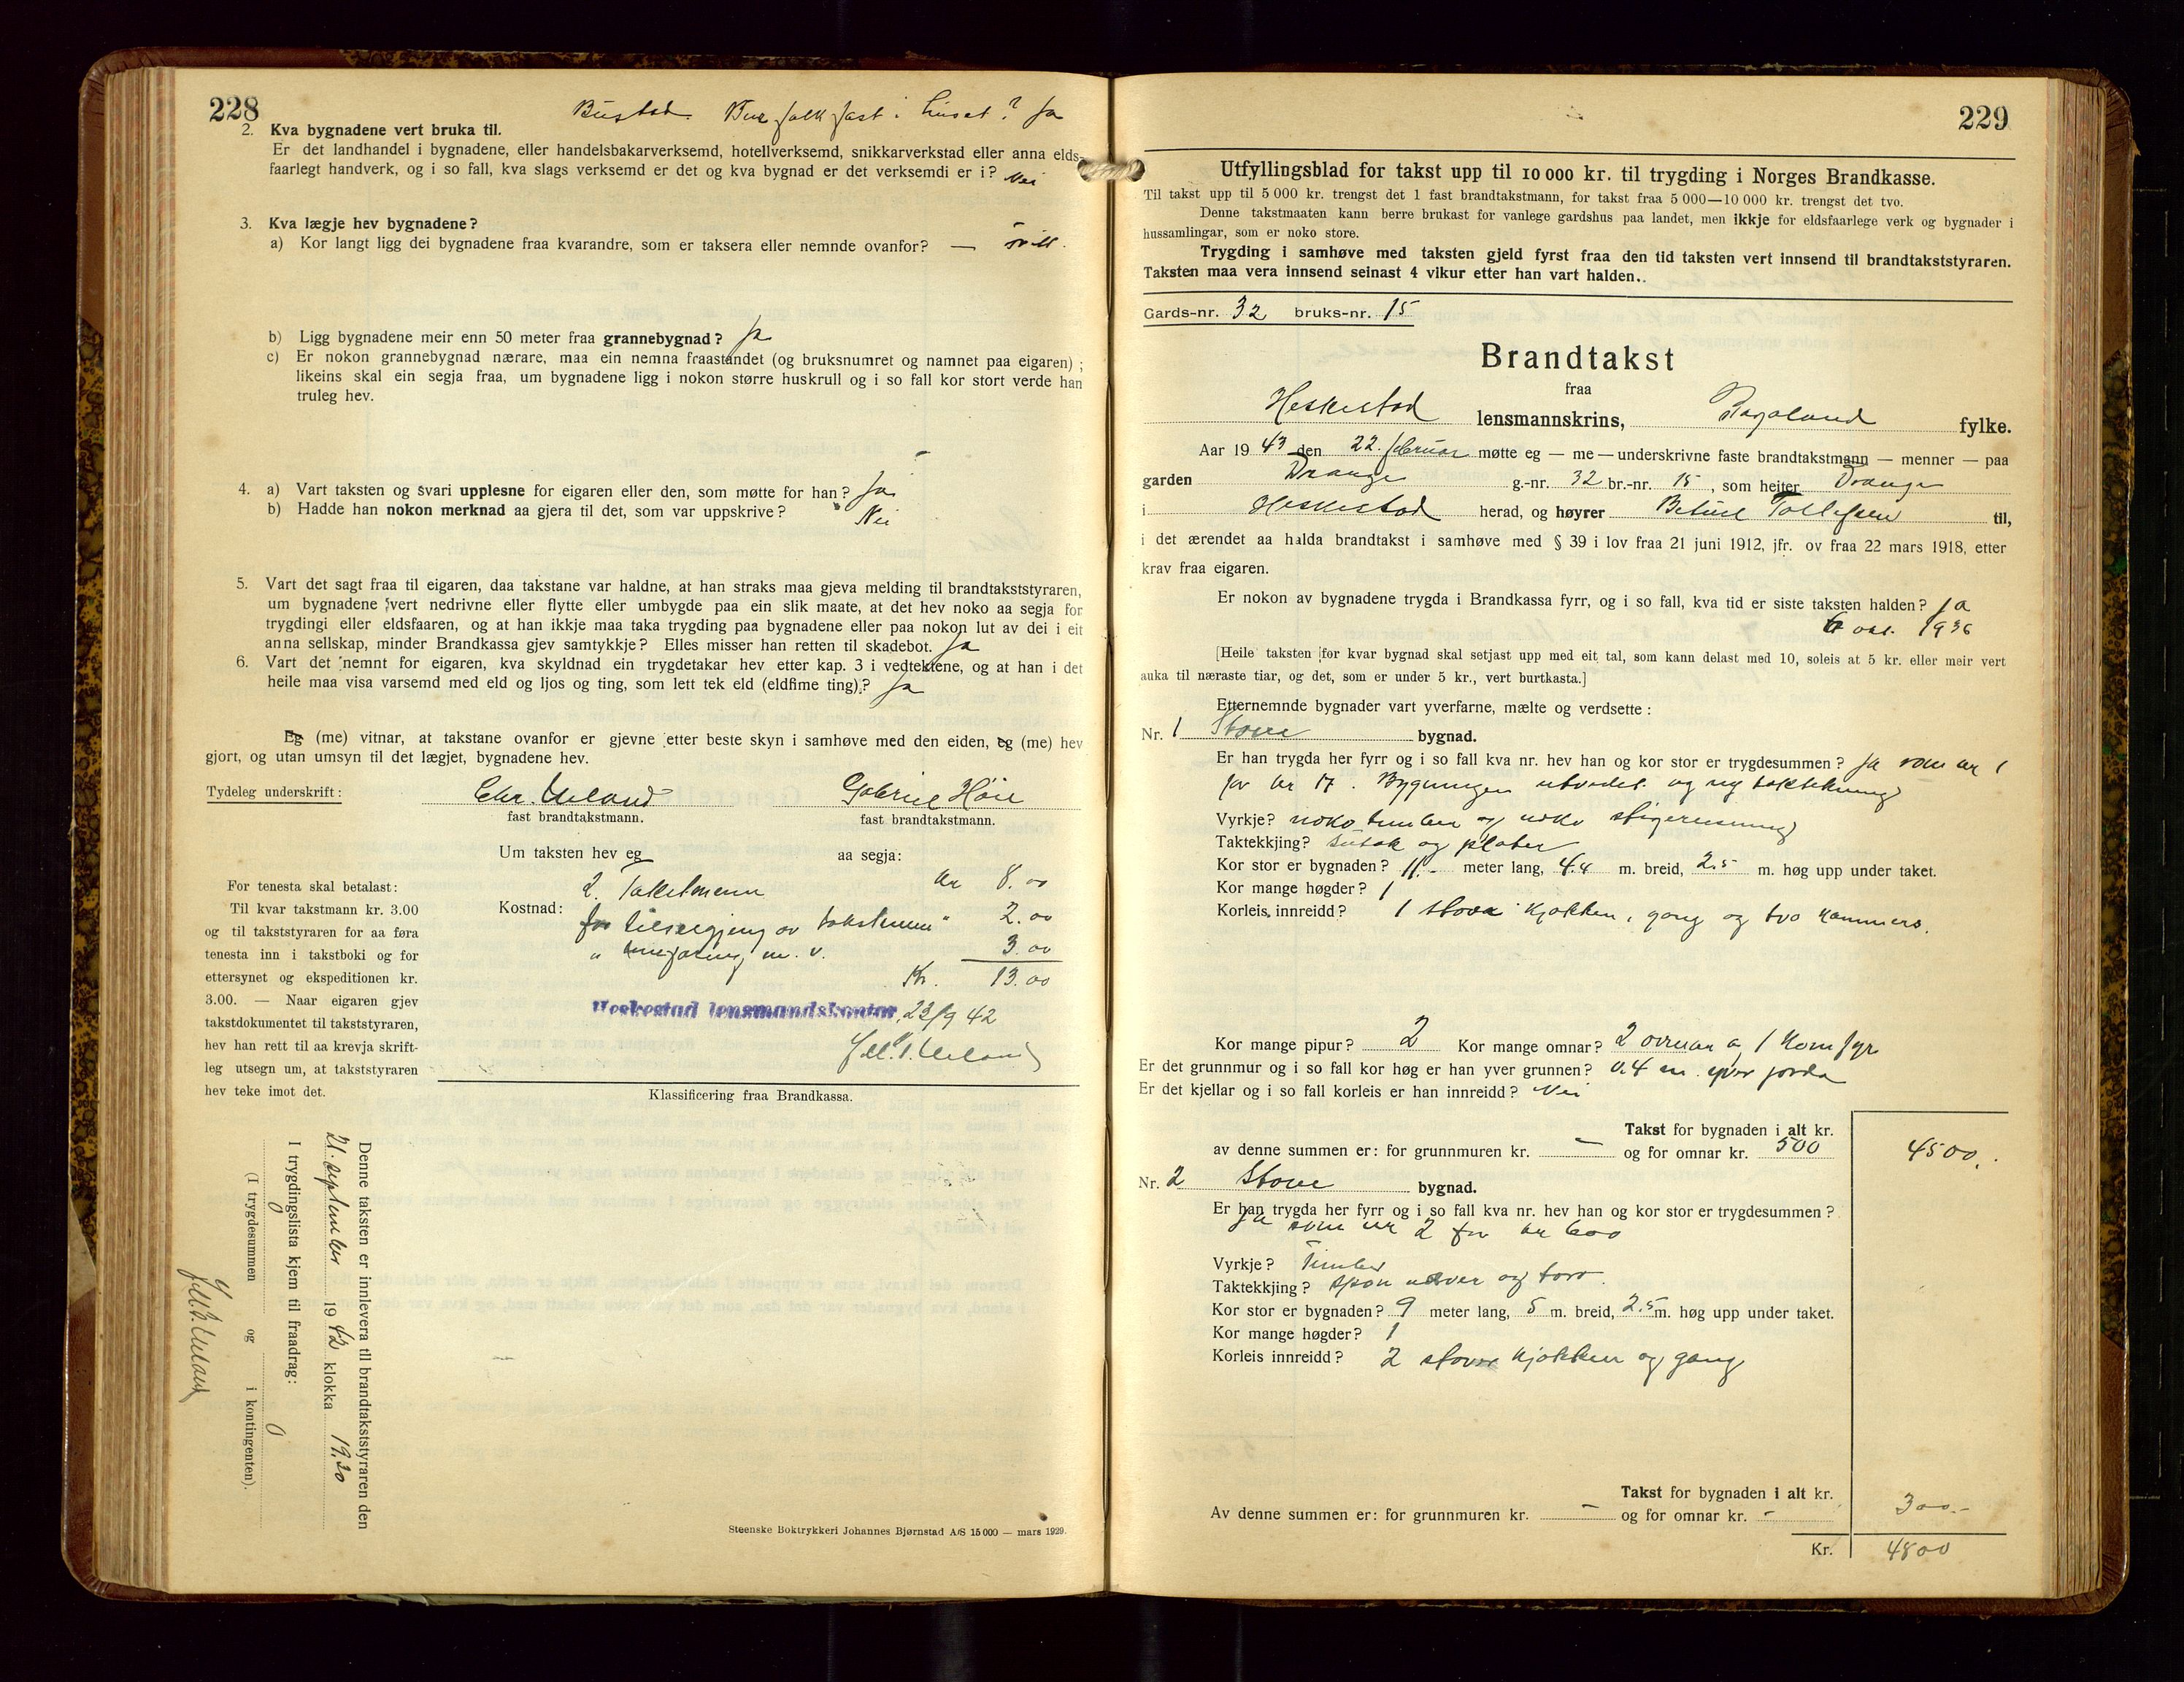 228
Bustad. Bur folk fast i huset? Ja
2. Kva bygnadene vert bruka til.
Er det landhandel i bygnadene, eller handelsbakarverksemd, hotellverksemd, snikkarverkstad eller anna elds-
faarlegt handverk, og i so fall, kva slags verksemd er det og kva bygnad er det verksemdi er i? Nei
3. Kva lægje hev bygnadene?
a) Kor langt ligg dei bygnadene fraa kvarandre, som er taksera eller nemnde ovanfor? —
b) Ligg bygnadene meir enn 50 meter fraa grannebygnad? Ja
c) Er nokon grannebygnad nærare, maa ein nemna fraastandet (og bruksnumret og namnet paa eigaren) ;
likeins skal ein segja fraa, um bygnadene ligg i nokon større huskrull og i so fall kor stort verde han
truleg hev.
4. a) Vart taksten og svari upplesne for eigaren eller den, som møtte for han? Ja
b) Hadde han nokon merknad aa gjera til det, som var uppskrive? Nei
5. Vart det sagt fraa til eigaren, daa takstane var haldne, at han straks maa gjeva melding til brandtakststyraren,
um bygnadene vert nedrivne eller flytte eller umbygde paa ein slik maate, at det hev noko aa segja for
trygdingi eller eldsfaaren, og at han ikkje maa taka trygding paa bygnadene eller paa nokon lut av dei i eit
anna sellskap, minder Brandkassa gjev samtykkje? Elles misser han retten til skadebot. Ja
6. Vart det nemnt for eigaren, kva skyldnad ein trygdetakar hev etter kap. 3 i vedtektene, og at han i det
heile maa visa varsemd med eld og ljos og ting, som lett tek eld (eldfime ting)? Ja
Eg (me) vitnar, at takstane ovanfor er gjevne etter beste skyn i samhøve med den eiden, eg (me) hev
gjort, og utan umsyn til det lægjet, bygnadene hev.
Tydeleg underskrift: Chr. Ueland Gabriel Høie
fast brandtakstmann. fast brandtakstmann.
Um taksten hev eg aa segja:
2. Takstmenn kr 8.00
Kostnad: for tilseigjing av takstmenn 2.00
" innføring m. v. 3.00
Kr. 13.00
Heskestad lensmandskontor, 23/9 42
For tenesta skal betalast:
Til kvar takstmann kr. 3.00
og til takststyraren for aa føra
tenesta inn i takstboki og for
ettersynet og ekspeditionen kr.
3.00. — Naar eigaren gjev
takstdokumentet til takststyraren,
hev han rett til aa krevja skrift-
leg utsegn um, at takststyraren
hev teke imot det.
Klassificering fraa Brandkassa.
Denne taksten er innlevera til brandtakststyraren den
21. september 1942 klokka 19,30
I trygdingslista kjem til fraadrag:
0 0
(I trygdesummen og i kontingenten).
Steenske Boktrykkeri Johannes Bjørnstad A/S 15 000 — mars 1929.
229
Utfyllingsblad for takst upp til 10 000 kr. til trygding i Norges Brandkasse.
Til takst upp til 5 000 kr. trengst det 1 fast brandtakstmann, for takst fraa 5 000—10 000 kr. trengst det tvo.
Denne takstmaaten kann berre brukast for vanlege gardshus paa landet, men ikkje for eldsfaarlege verk og bygnader i
hussamlingar, som er noko store.
Trygding i samhøve med taksten gjeld fyrst fraa den tid taksten vert innsend til brandtakststyraren.
Taksten maa vera innsend seinast 4 vikur etter han vart halden.
Gards-nr. 32 bruks-nr. 15
Brandtakst
fraa
Heskestad lensmannskrins, Rogaland fylke.
Aar 1943 den 22. februar møtte eg — me — underskrivne faste brandtakstmann — menner — paa
garden Drange g.-nr. 32 br.-nr. 15, som heiter Drange
i Heskestad herad, og høyrer Betuel Tollefsen til,
i det ærendet aa halda brandtakst i samhøve med § 39 i lov fraa 21 juni 1912, jfr. ov fraa 22 mars 1918, etter
krav fraa eigaren.
Er nokon av bygnadene trygda i Brandkassa fyrr, og i so fall, kva tid er siste taksten halden? Ja
6 okt. 1936
[Heile taksten for kvar bygnad skal setjast upp med eit tal, som kann delast med 10, soleis at 5 kr. eller meir vert
auka til næraste tiar, og det, som er under 5 kr., vert burtkasta.]
Etternemnde bygnader vart yverfarne, mælte og verdsette :
Nr. 1 Stova bygnad.
Er han trygda her fyrr og i so fall kva nr. hev han og kor stor er trygdesummen? Ja som nr 1
for kr 17. Bygningen utvidet og ny taktekning
Vyrkje? noko timber og noko
Taktekkjing? Sutak og plater
Kor stor er bygnaden? 11.- meter lang, 4.4 m. breid, 2.5 m. høg upp under taket.
Kor mange høgder? 1
Korleis innreidd? 1 stova kjøkken, gang og tvo kammers.
Kor mange pipur? 2 Kor mange omnar? 2 ovnar og 1 komfyr
Er det grunnmur og i so fall kor høg er han yver grunnen? 0.4 m. yver jorda
Er det kjellar og i so fall korleis er han innreidd? Nei
Takst for bygnaden i alt kr.
av denne summen er: for grunnmuren kr. — og for omnar kr. 500 4500.
Nr. 2 Stove bygnad.
Er han trygda her fyrr og i so fall kva nr. hev han og kor stor er trygdesummen?
Ja som nr 2 for kr 600
Vyrkje? Timber
Taktekkjing? Spon næver og torv.
Kor stor er bygnaden? 9 meter lang, 5 m. breid, 2.5 m. høg upp under taket.
Kor mange høgder? 1
Korleis innreidd? 2 stover kjøkken og gang
Takst for bygnaden i alt kr.
Av denne summen er: for grunnmuren kr. — og for omnar kr. - 300.-
Kr. 4800